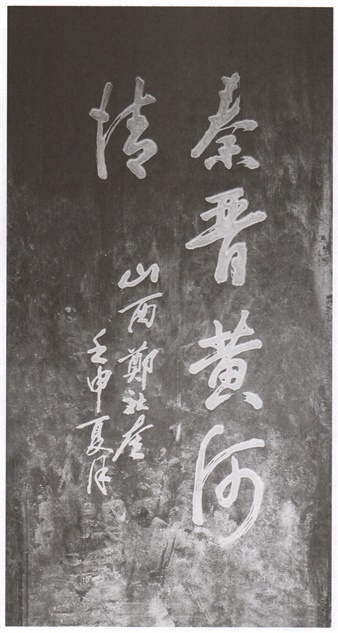 秦晋黄河
情
山西郑社奎
壬申夏月